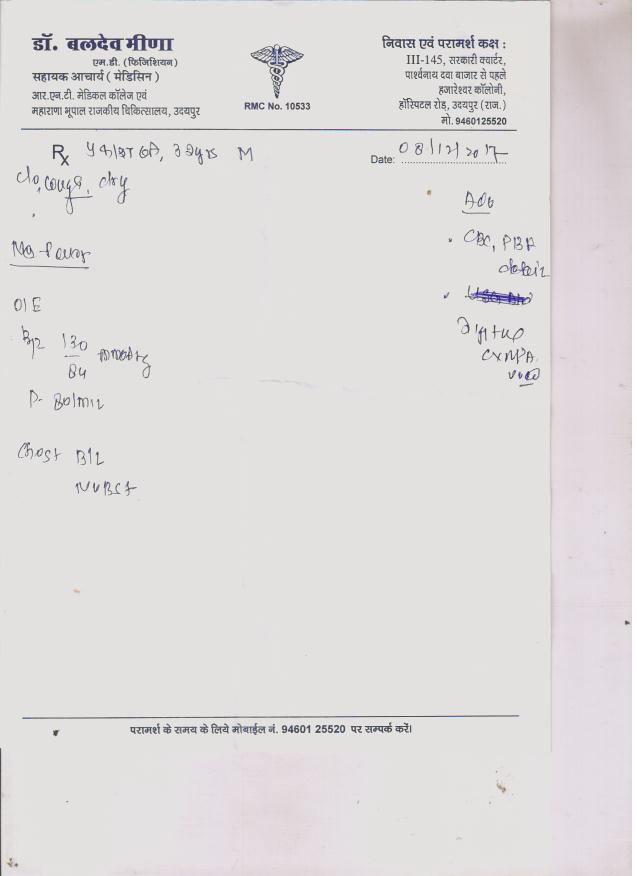 डॉ. बलदेव मीणा
एम.डी. (फिजिशियन)
सहायक आचार्य ( मेडिसिन )
आर.एन.टी. मेडिकल कॉलेज एवं
महाराणा भूपाल राजकीय चिकित्सालय, उदयपुर
RMC No. 10533
निवास एवं परामर्श कक्ष :
III-145, सरकारी क्वार्टर,
पार्श्वनाथ दवा बाजार से पहले
हजारेश्वर कॉलोनी,
हॉस्पिटल रोड़, उदयपुर (राज.)
मो. 9460125520
Rx M
Date: 08/12/2017
c/o, cough, dry
Adv
CBC, PBF
O/E
BP 130
84 mmHg
P- 80/min
Chest B/L
NVBS+
परामर्श के समय के लिये मोबाईल नं. 94601 25520 पर सम्पर्क करें।